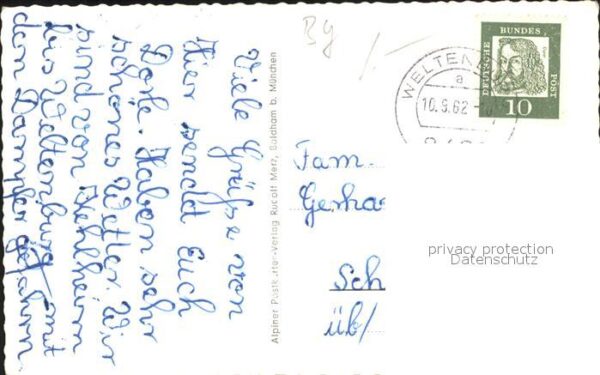 Viele Grüße von
hier sendet Euch
Dorle. Haben sehr
schönes Wetter. Wir
sind von Kehlheim
bis Weltenburg mit
dem Dampfer gefahren.
Alpiner Postkarten-Verlag Rudolf Merz, Baldham b. München
By
1.-
WELTEN
a
10.9.62
DEUTSCHE
BUNDES
POST
10
Fam.
Gerha
Sch
üb/
privacy protection
Datenschutz